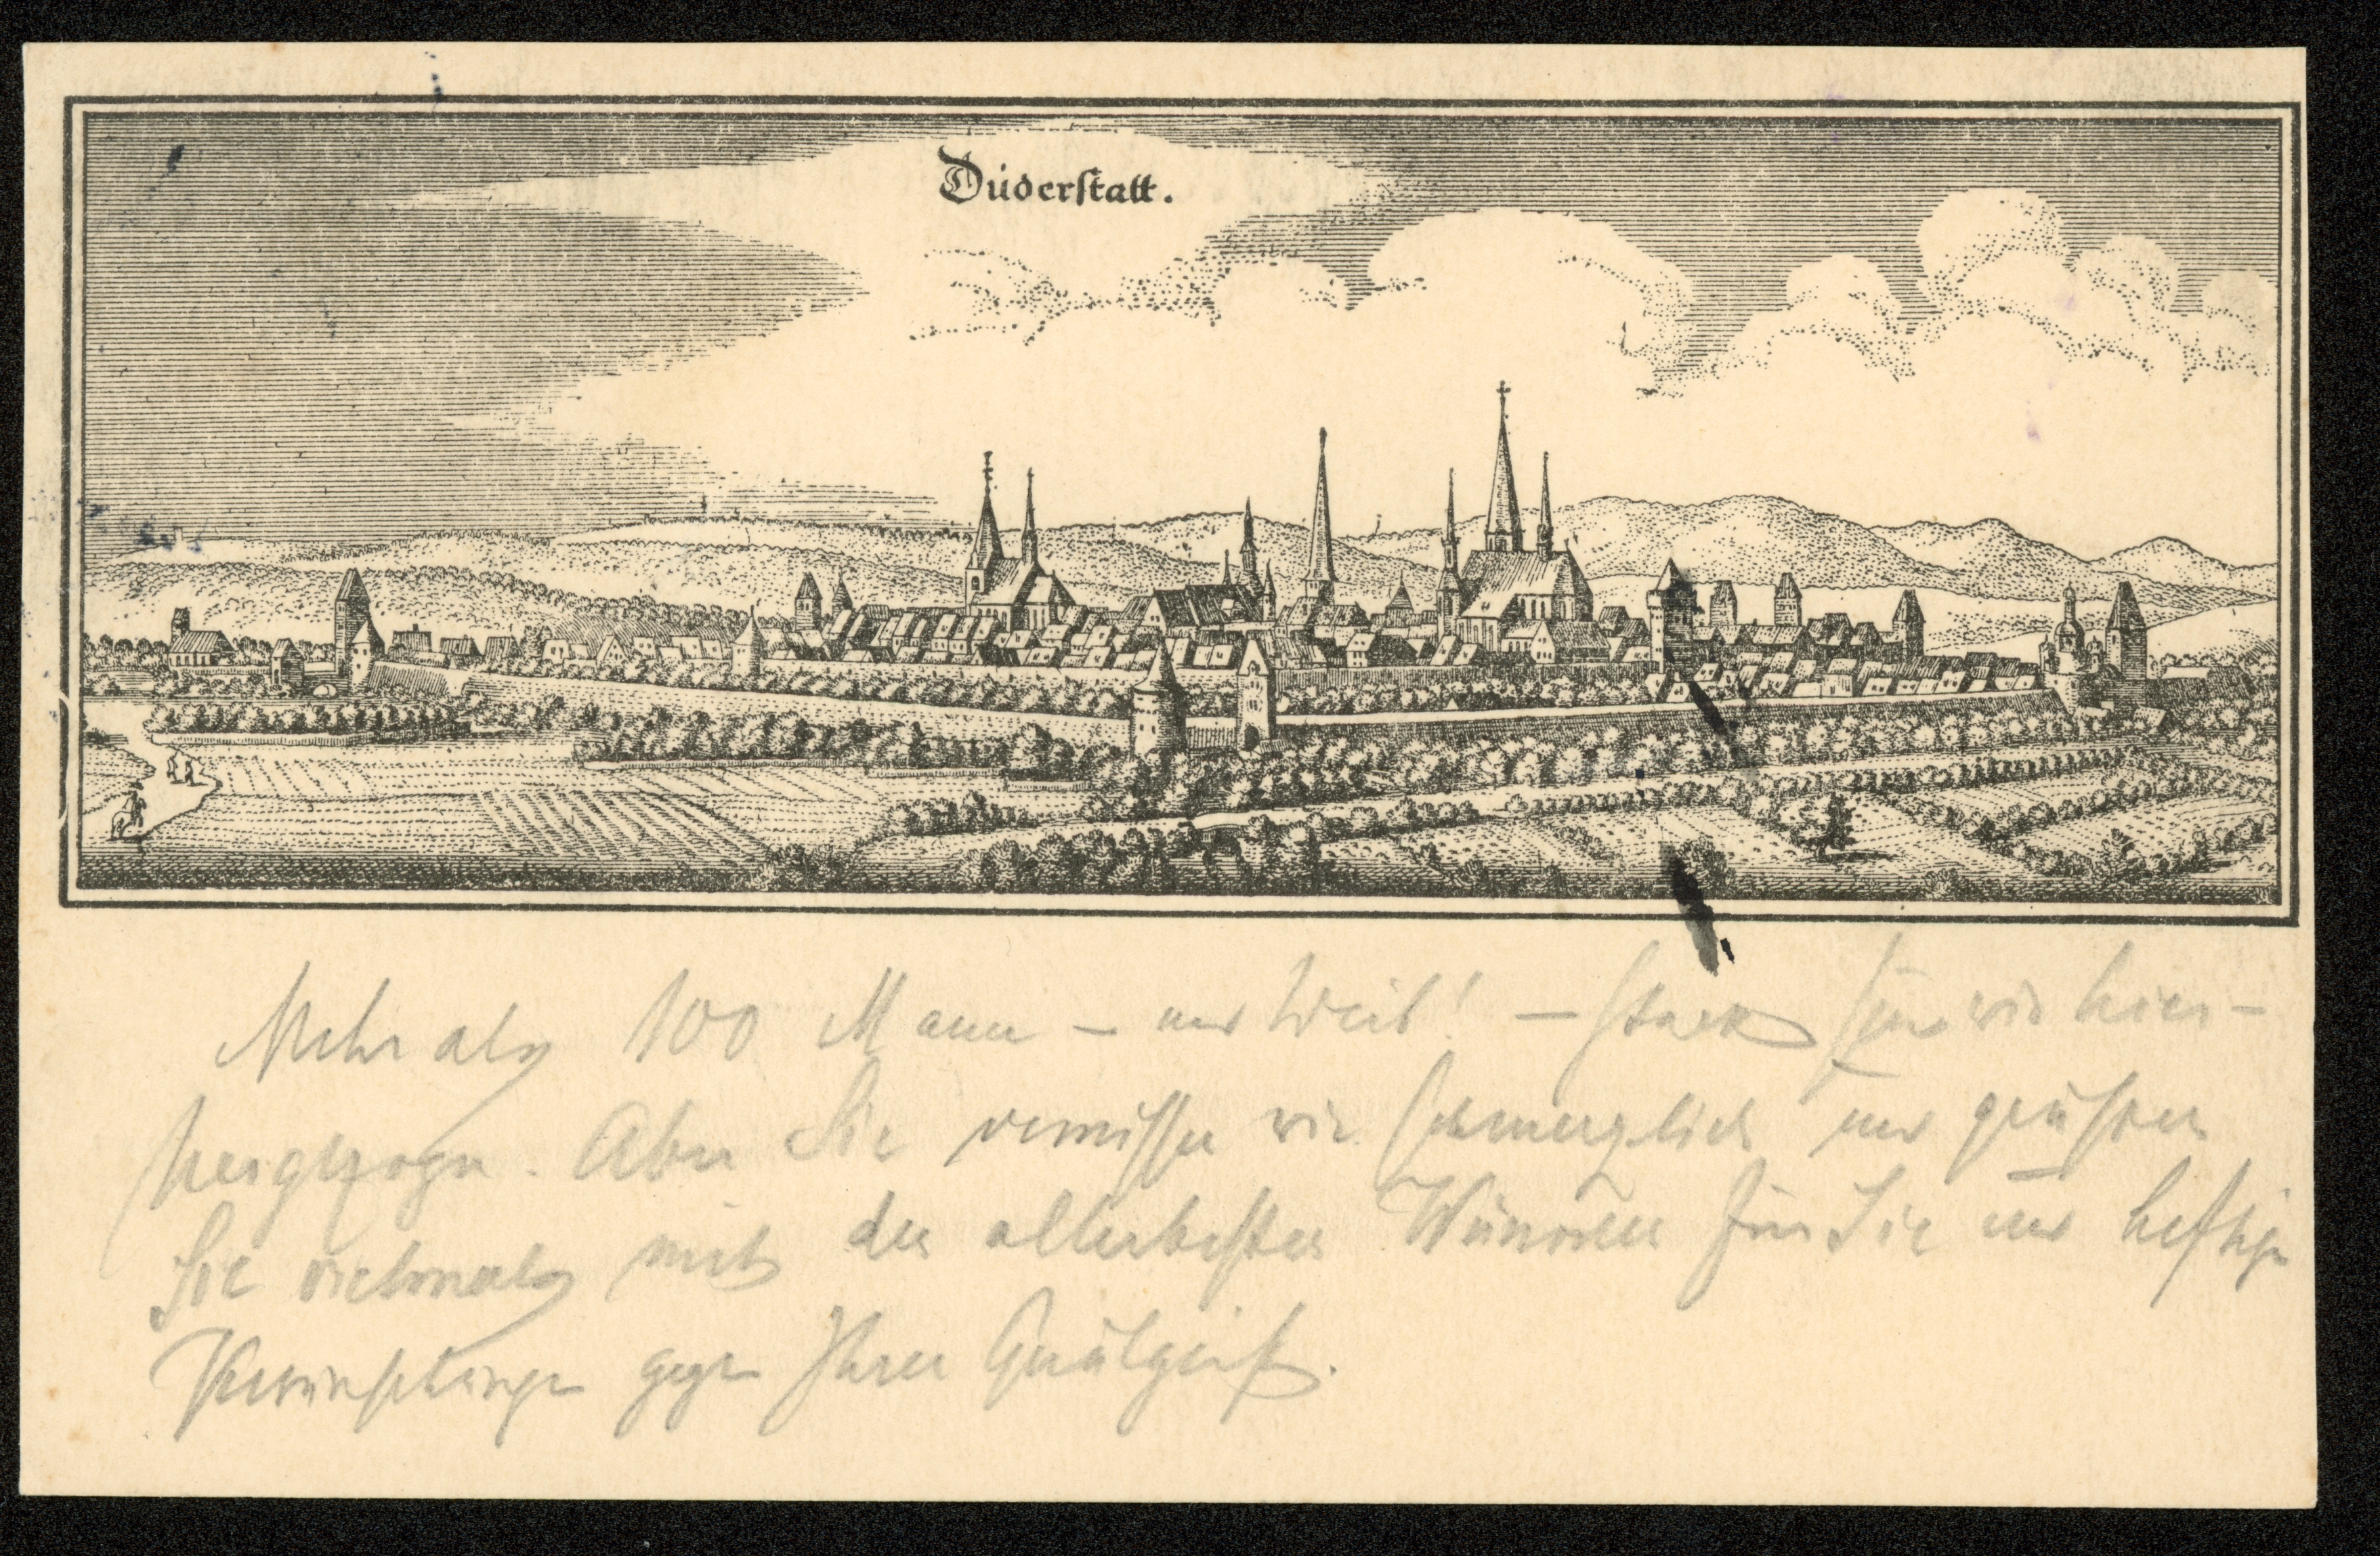 Duderstatt.
Mehr als 100 Mann – und Weib! – stark sind wir hier-
hergezogen. Aber Sie vermissen wir schmerzlich und grüssen
Sie vielmals mit den allerbesten Wünschen für Sie und heftigen
Verwünschungen gegen Ihren Quälgeist.